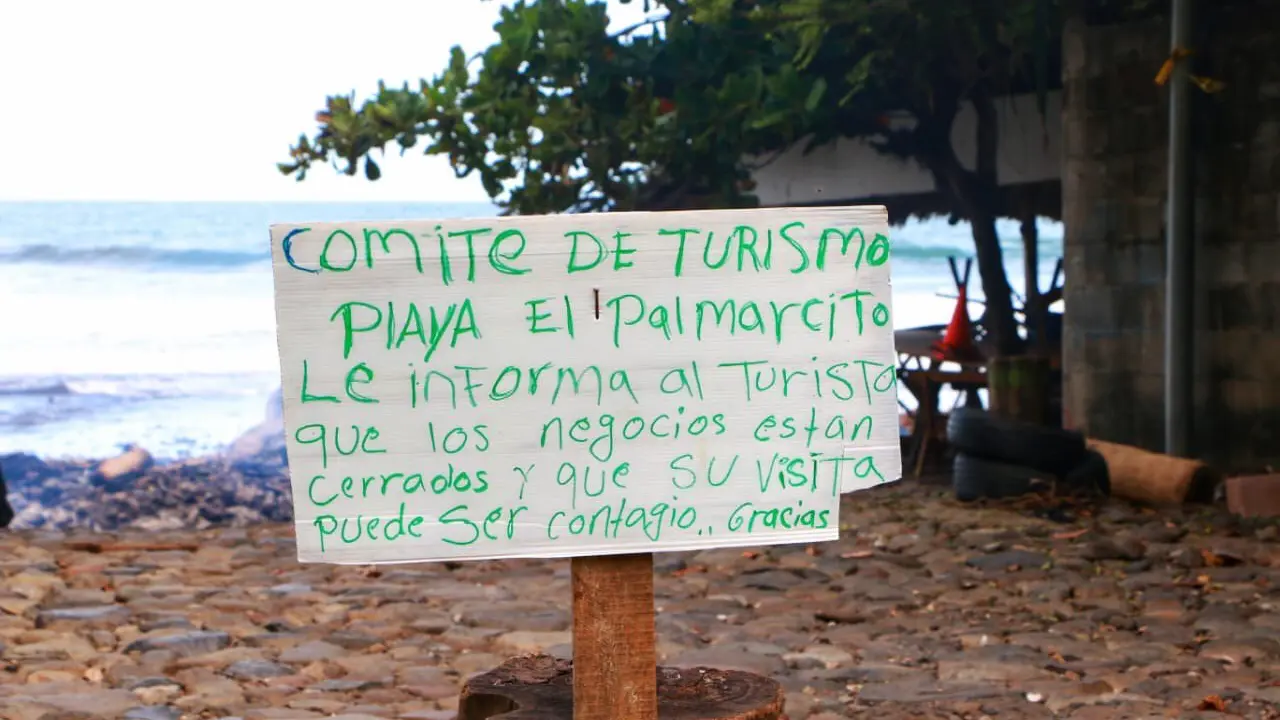 COMITE DE TURISMO
PlAYA El PalmarciTo
Le inForma al Turista
que los negocios estan
cerrados y que SU visiTa
puede Ser contagio.. Gracias